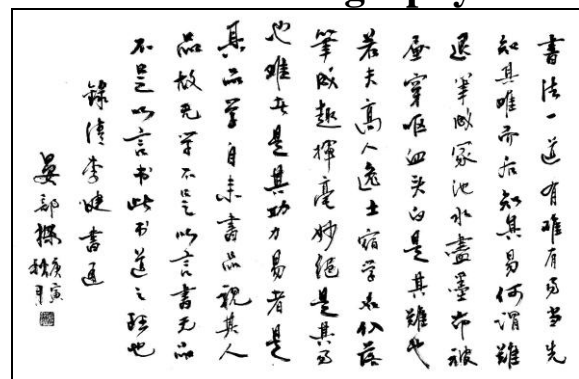 graphy
書法一道有難有易當先
知其难而后知其易何谓難
退筆成冢池水盡墨布被
畫穿呕血头白是其難也
若夫高人逸士宿学名落
筆成趣揮毫妙絕是其易
也难者是其功力易者是
其品学自来書品視其人
品故无学不足以言書无品
不足以言书此书道之極也
錄清李健書通
庚寅秋月